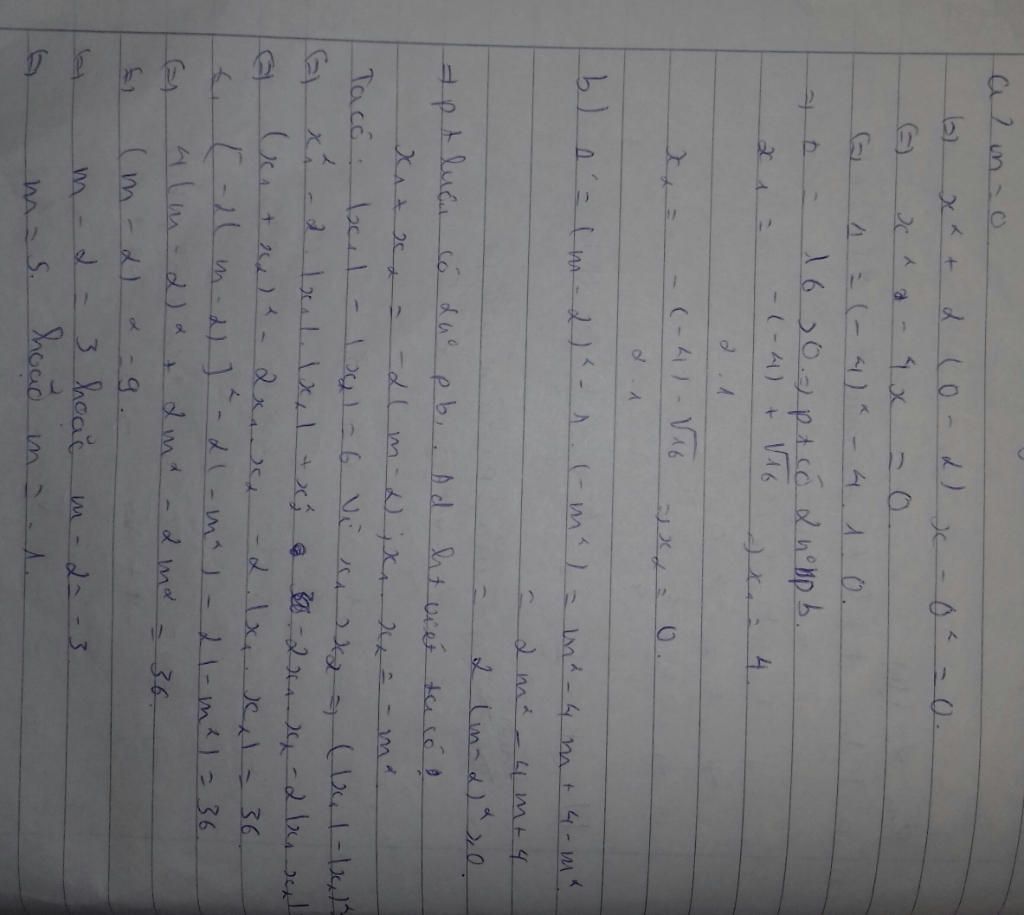 a) m = 0
(=) x² + 2 (0 - 2) x - 0² = 0.
(=) x² - 4x = 0
(=) Δ = (-4)² - 4.1.0.
=> Δ = 16 > 0 => pt có 2 n° pb.
x₁ = -(-4) + √16 / 2.1 => x₁ = 4.
x₂ = -(-4) - √16 / 2.1 => x₂ = 0.
b) Δ' = (m - 2)² - 1. (-m²) = m² - 4m + 4 - m²
= 2m² - 4m + 4
= 2 (m - 2)² ≥ 0.
=> pt luôn có 2 n° pb. Ad ht viét ta có:
x₁ + x₂ = -2(m - 2); x₁. x₂ = -m²
Ta có: |x₁| - |x₂| = 6 Vì x₁ > x₂ => (|x₁| - |x₂|)²
(=) x₁² - 2.|x₁|.|x₂| + x₂² - 2x₁.x₂ - 2|x₁.x₂|
(=) (x₁ + x₂)² - 2x₁.x₂ - 2.|x₁.x₂| = 36
(=) [-2(m - 2)]² - 2(-m²) - 2|-m²| = 36
(=) 4(m - 2)² + 2m² - 2m² = 36.
(=) (m - 2)² = 9.
(=) m - 2 = 3 hoặc m - 2 = -3
(=) m = 5. hoặc m = -1.